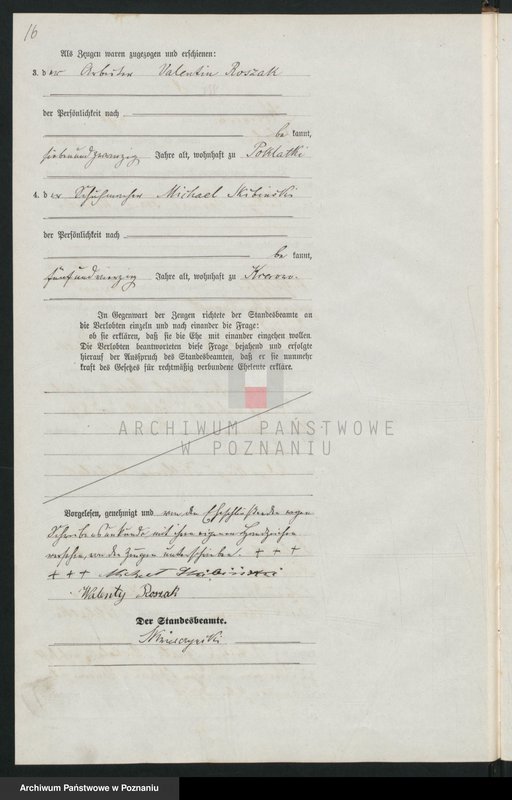 16
Als Zeugen waren zugezogen und erschienen:
3. der Arbeiter Valentin Roszak
der Persönlichkeit nach
be kannt,
siebenundzwanzig Jahre alt, wohnhaft zu Poklatki
4. der Schuhmacher Michael Skibinski
der Persönlichkeit nach
be kannt,
fünfundvierzig Jahre alt, wohnhaft zu
In Gegenwart der Zeugen richtete der Standesbeamte an
die Verlobten einzeln und nach einander die Frage:
ob sie erklären, daß sie die Ehe mit einander eingehen wollen.
Die Verlobten beantworteten diese Frage bejahend und erfolgte
hierauf der Ausspruch des Standesbeamten, daß er sie nunmehr
kraft des Gesetzes für rechtmäßig verbundene Eheleute erkläre.
ARCHIWUM PAŃSTWOWE
W POZNANIU
Vorgelesen, genehmigt und von den Eheschließenden wegen
Schreibensunkunde mit ihren eigenen Handzeichen
versehen, von den Zeugen unterschrieben. + + +
+ + + Michael Skibinski
Walenty Roszak
Der Standesbeamte.
Archiwum Państwowe w Poznaniu